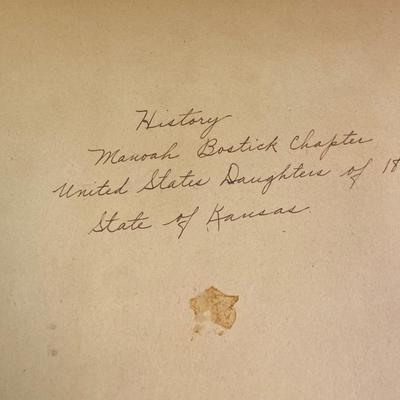 History
Manoah Bostick Chapter
United States Daughters of 18
State of Kansas.